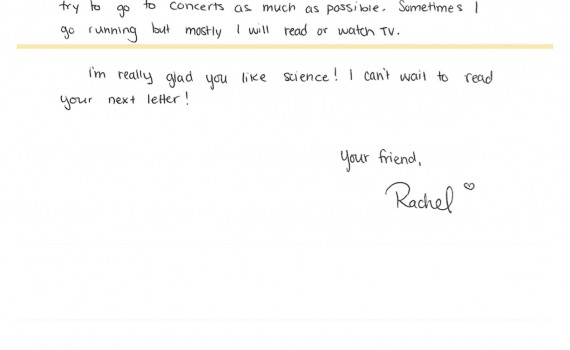 try to go to concerts as much as possible. Sometimes I
go running but mostly I will read or watch TV.
I'm really glad you like science! I can't wait to read
your next letter!
your friend,
Rachel ♡